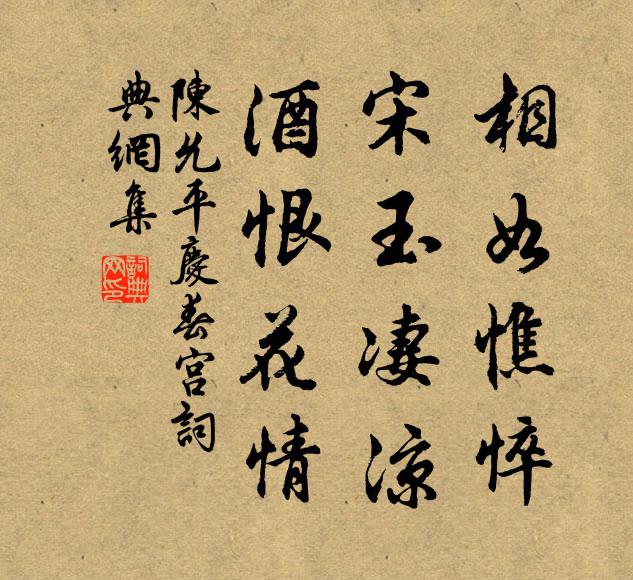 相如憔悴
宋玉凄涼
酒恨花情
陳允平慶春宮詞
典網集
詞典網印